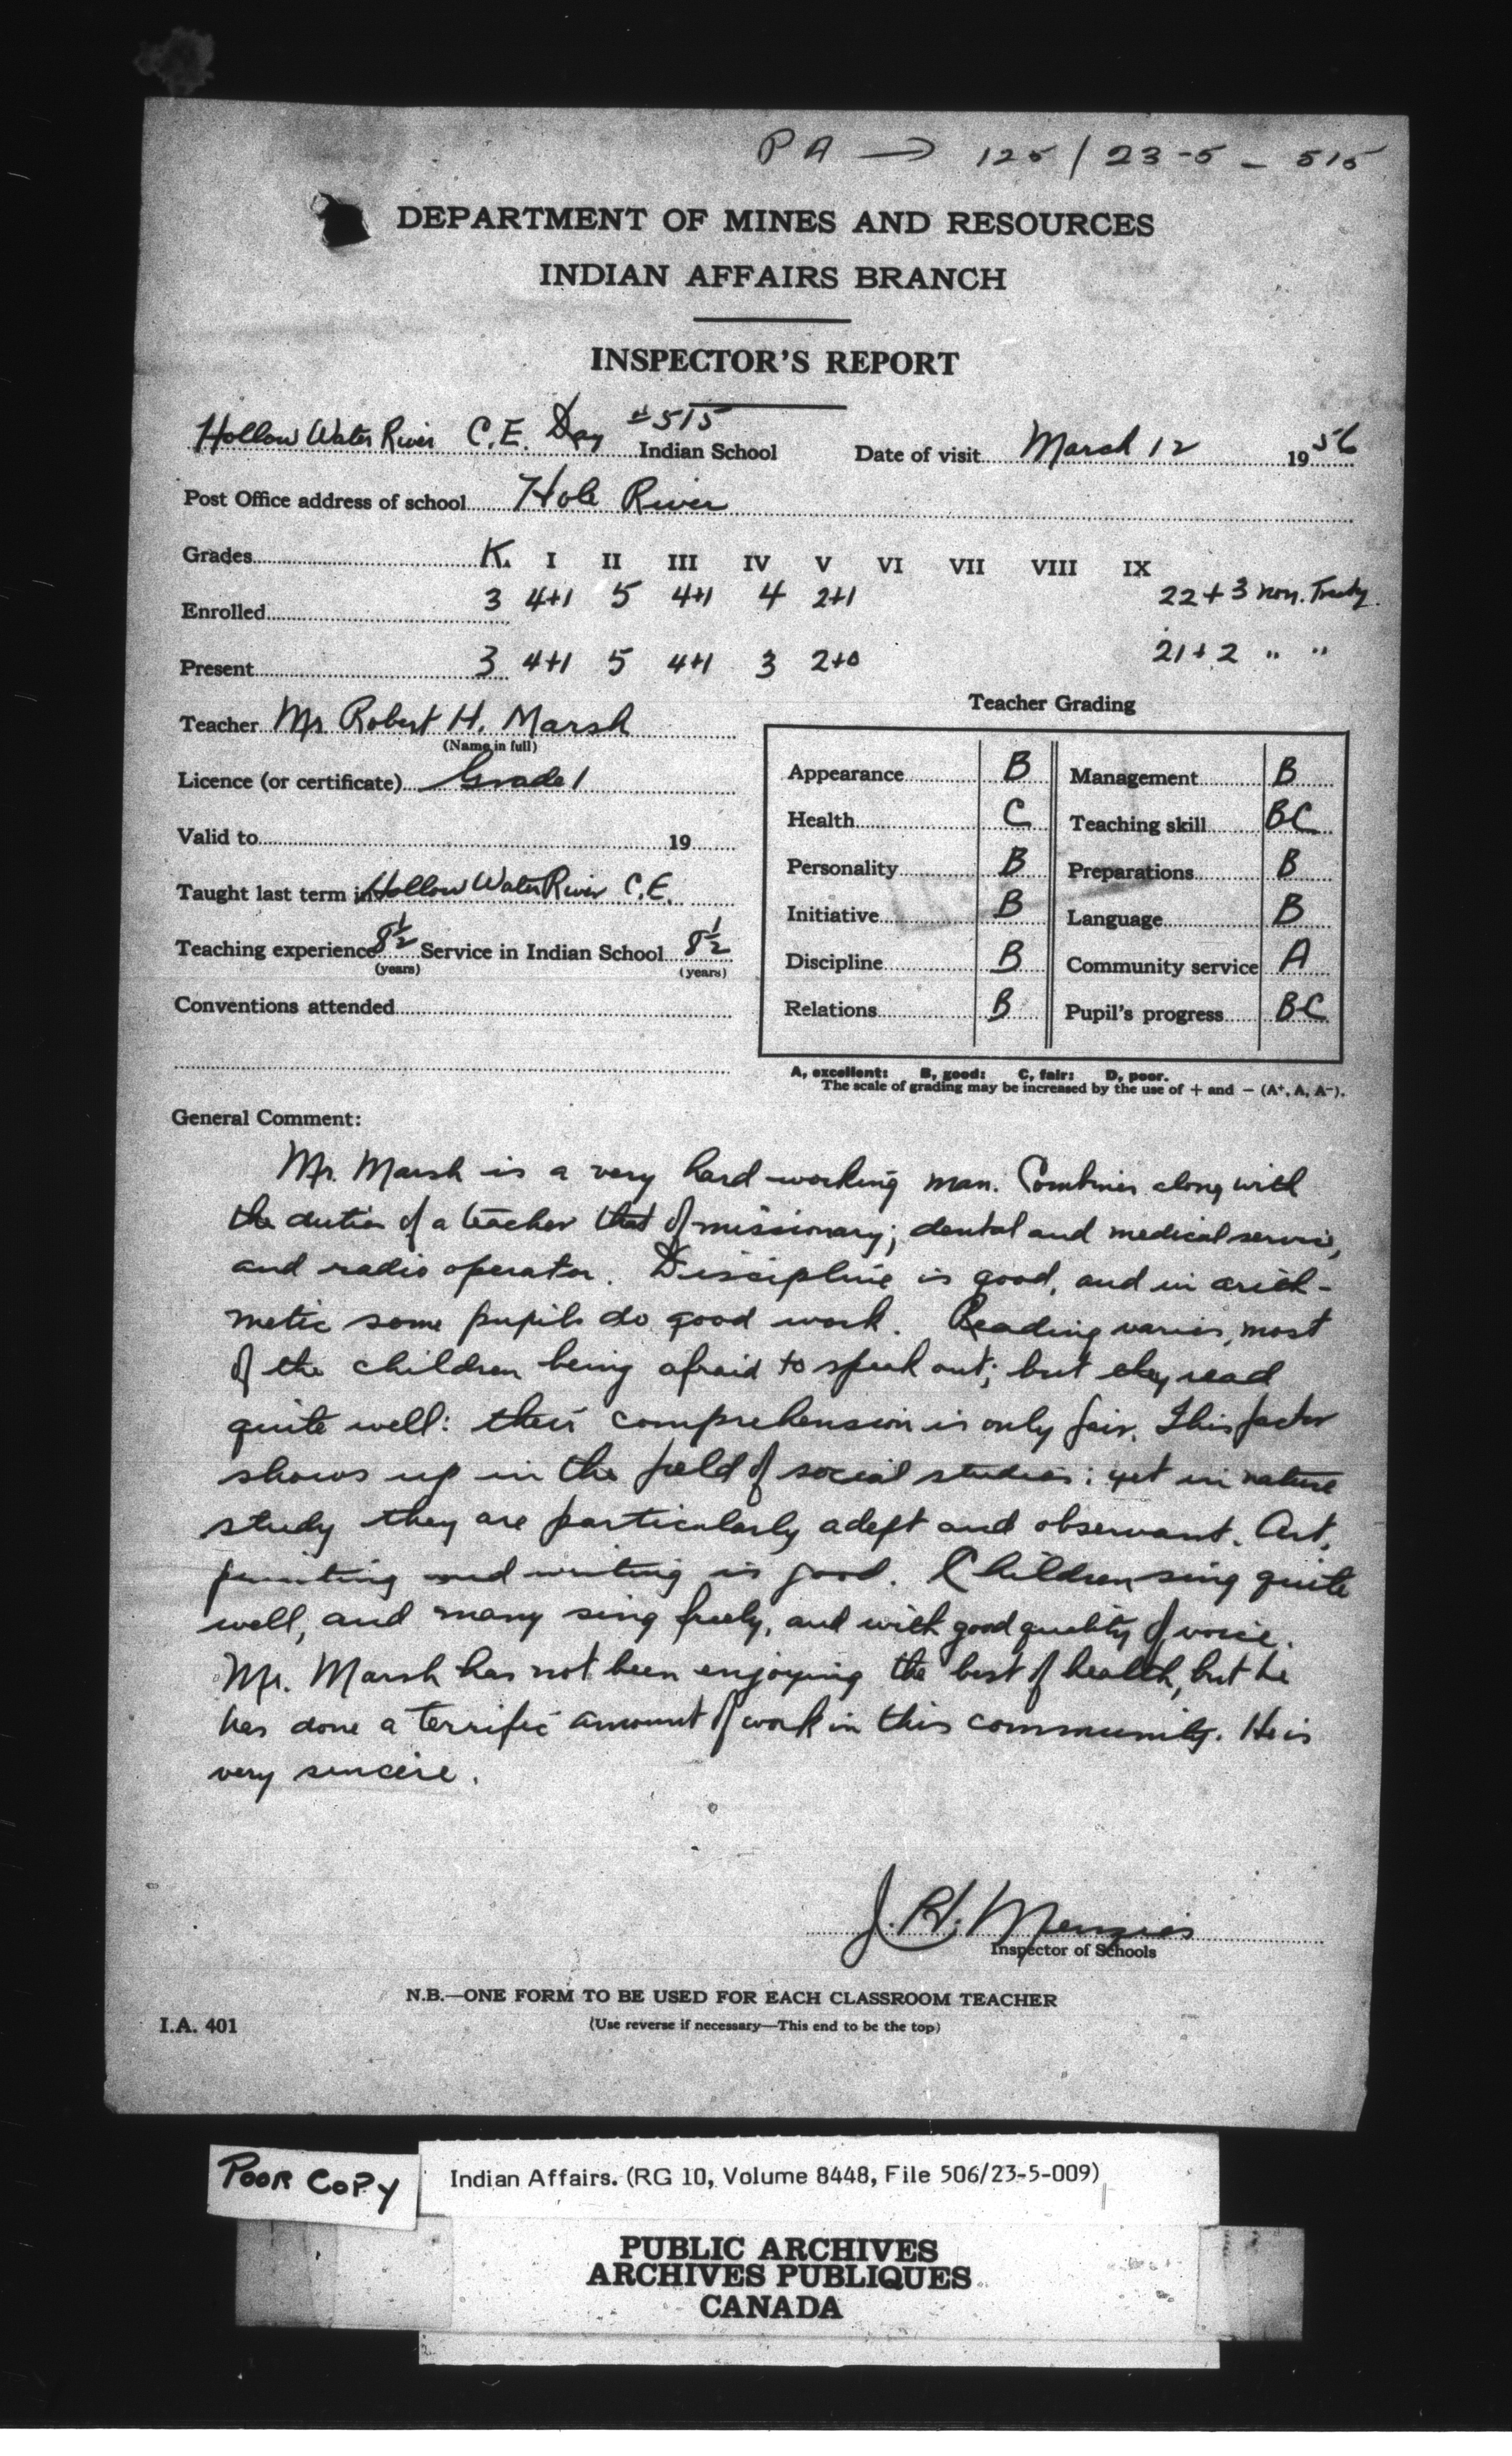 P A → 125 / 23-5 - 515
DEPARTMENT OF MINES AND RESOURCES
INDIAN AFFAIRS BRANCH
INSPECTOR'S REPORT
Hollow Water River C.E. Day #515 Indian School Date of visit March 12 1956
Post Office address of school Hole River
Grades K. I II III IV V VI VII VIII IX
Enrolled 3 4+1 5 4+1 4 2+1 22+3 non. Treaty.
Present 3 4+1 5 4+1 3 2+0 21+2 " "
Teacher Mr Robert H. Marsh
(Name in full)
Licence (or certificate) Grade 1
Valid to 19
Taught last term in Hollow Water River C.E.
Teaching experience 8½ Service in Indian School 8½
(years) (years)
Conventions attended
Teacher Grading
Appearance B Management B
Health C Teaching skill BC
Personality B Preparations B
Initiative B Language B
Discipline B Community service A
Relations B Pupil's progress BC
A, excellent: B, good: C, fair: D, poor.
The scale of grading may be increased by the use of + and - (A+, A, A-).
General Comment:
Mr. Marsh is a very hard-working man. Combines along with
the duties of a teacher that of missionary; dental and medical service,
and radio operator. Discipline is good, and in arith-
metic some pupils do good work. Reading varies, most
of the children being afraid to speak out; but they read
quite well: their comprehension is only fair. This factor
shows up in the field of social studies; yet in nature
study they are particularly adept and observant. Art,
printing and writing is good. Children sing quite
well, and many sing freely, and with good quality of voice.
Mr. Marsh has not been enjoying the best of health, but he
has done a terrific amount of work in this community. He is
very sincere.
J. H. Menzies
Inspector of Schools
N.B.—ONE FORM TO BE USED FOR EACH CLASSROOM TEACHER
I.A. 401 (Use reverse if necessary—This end to be the top)
POOR COPY
Indian Affairs. (RG 10, Volume 8448, File 506/23-5-009)
PUBLIC ARCHIVES
ARCHIVES PUBLIQUES
CANADA